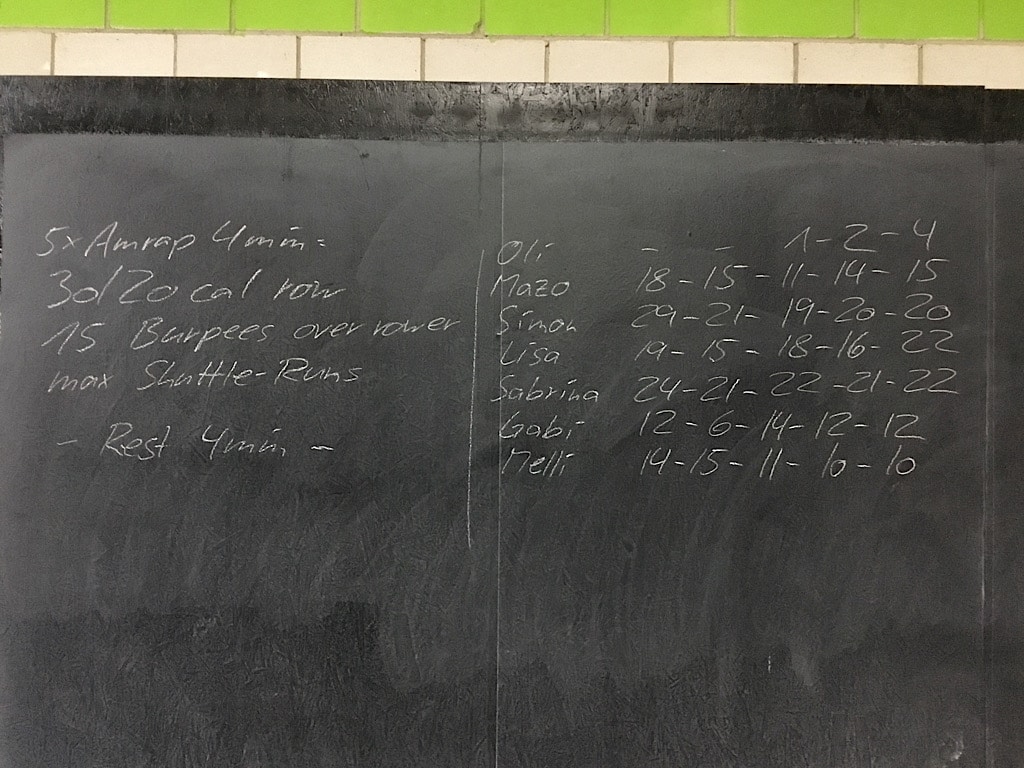 5x Amrap 4min:
30/20 cal row
15 Burpees over rower
max Shuttle-Runs
- Rest 4min -
Oli - - 1-2-4
Mazo 18-15-11-14-15
Simon 29-21-19-20-20
Lisa 19-15-18-16-22
Sabrina 24-21-22-21-22
Gabi 12-6-14-12-12
Melli 14-15-11-10-10